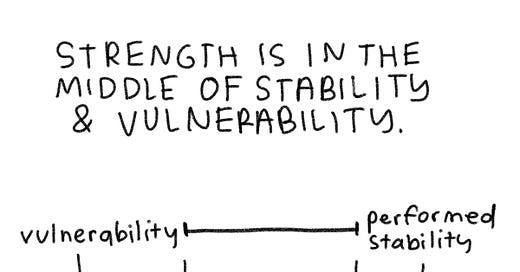 STRENGTH IS IN THE
MIDDLE OF STABILITY
& VULNERABILITY.
vulnerability
performed
stability